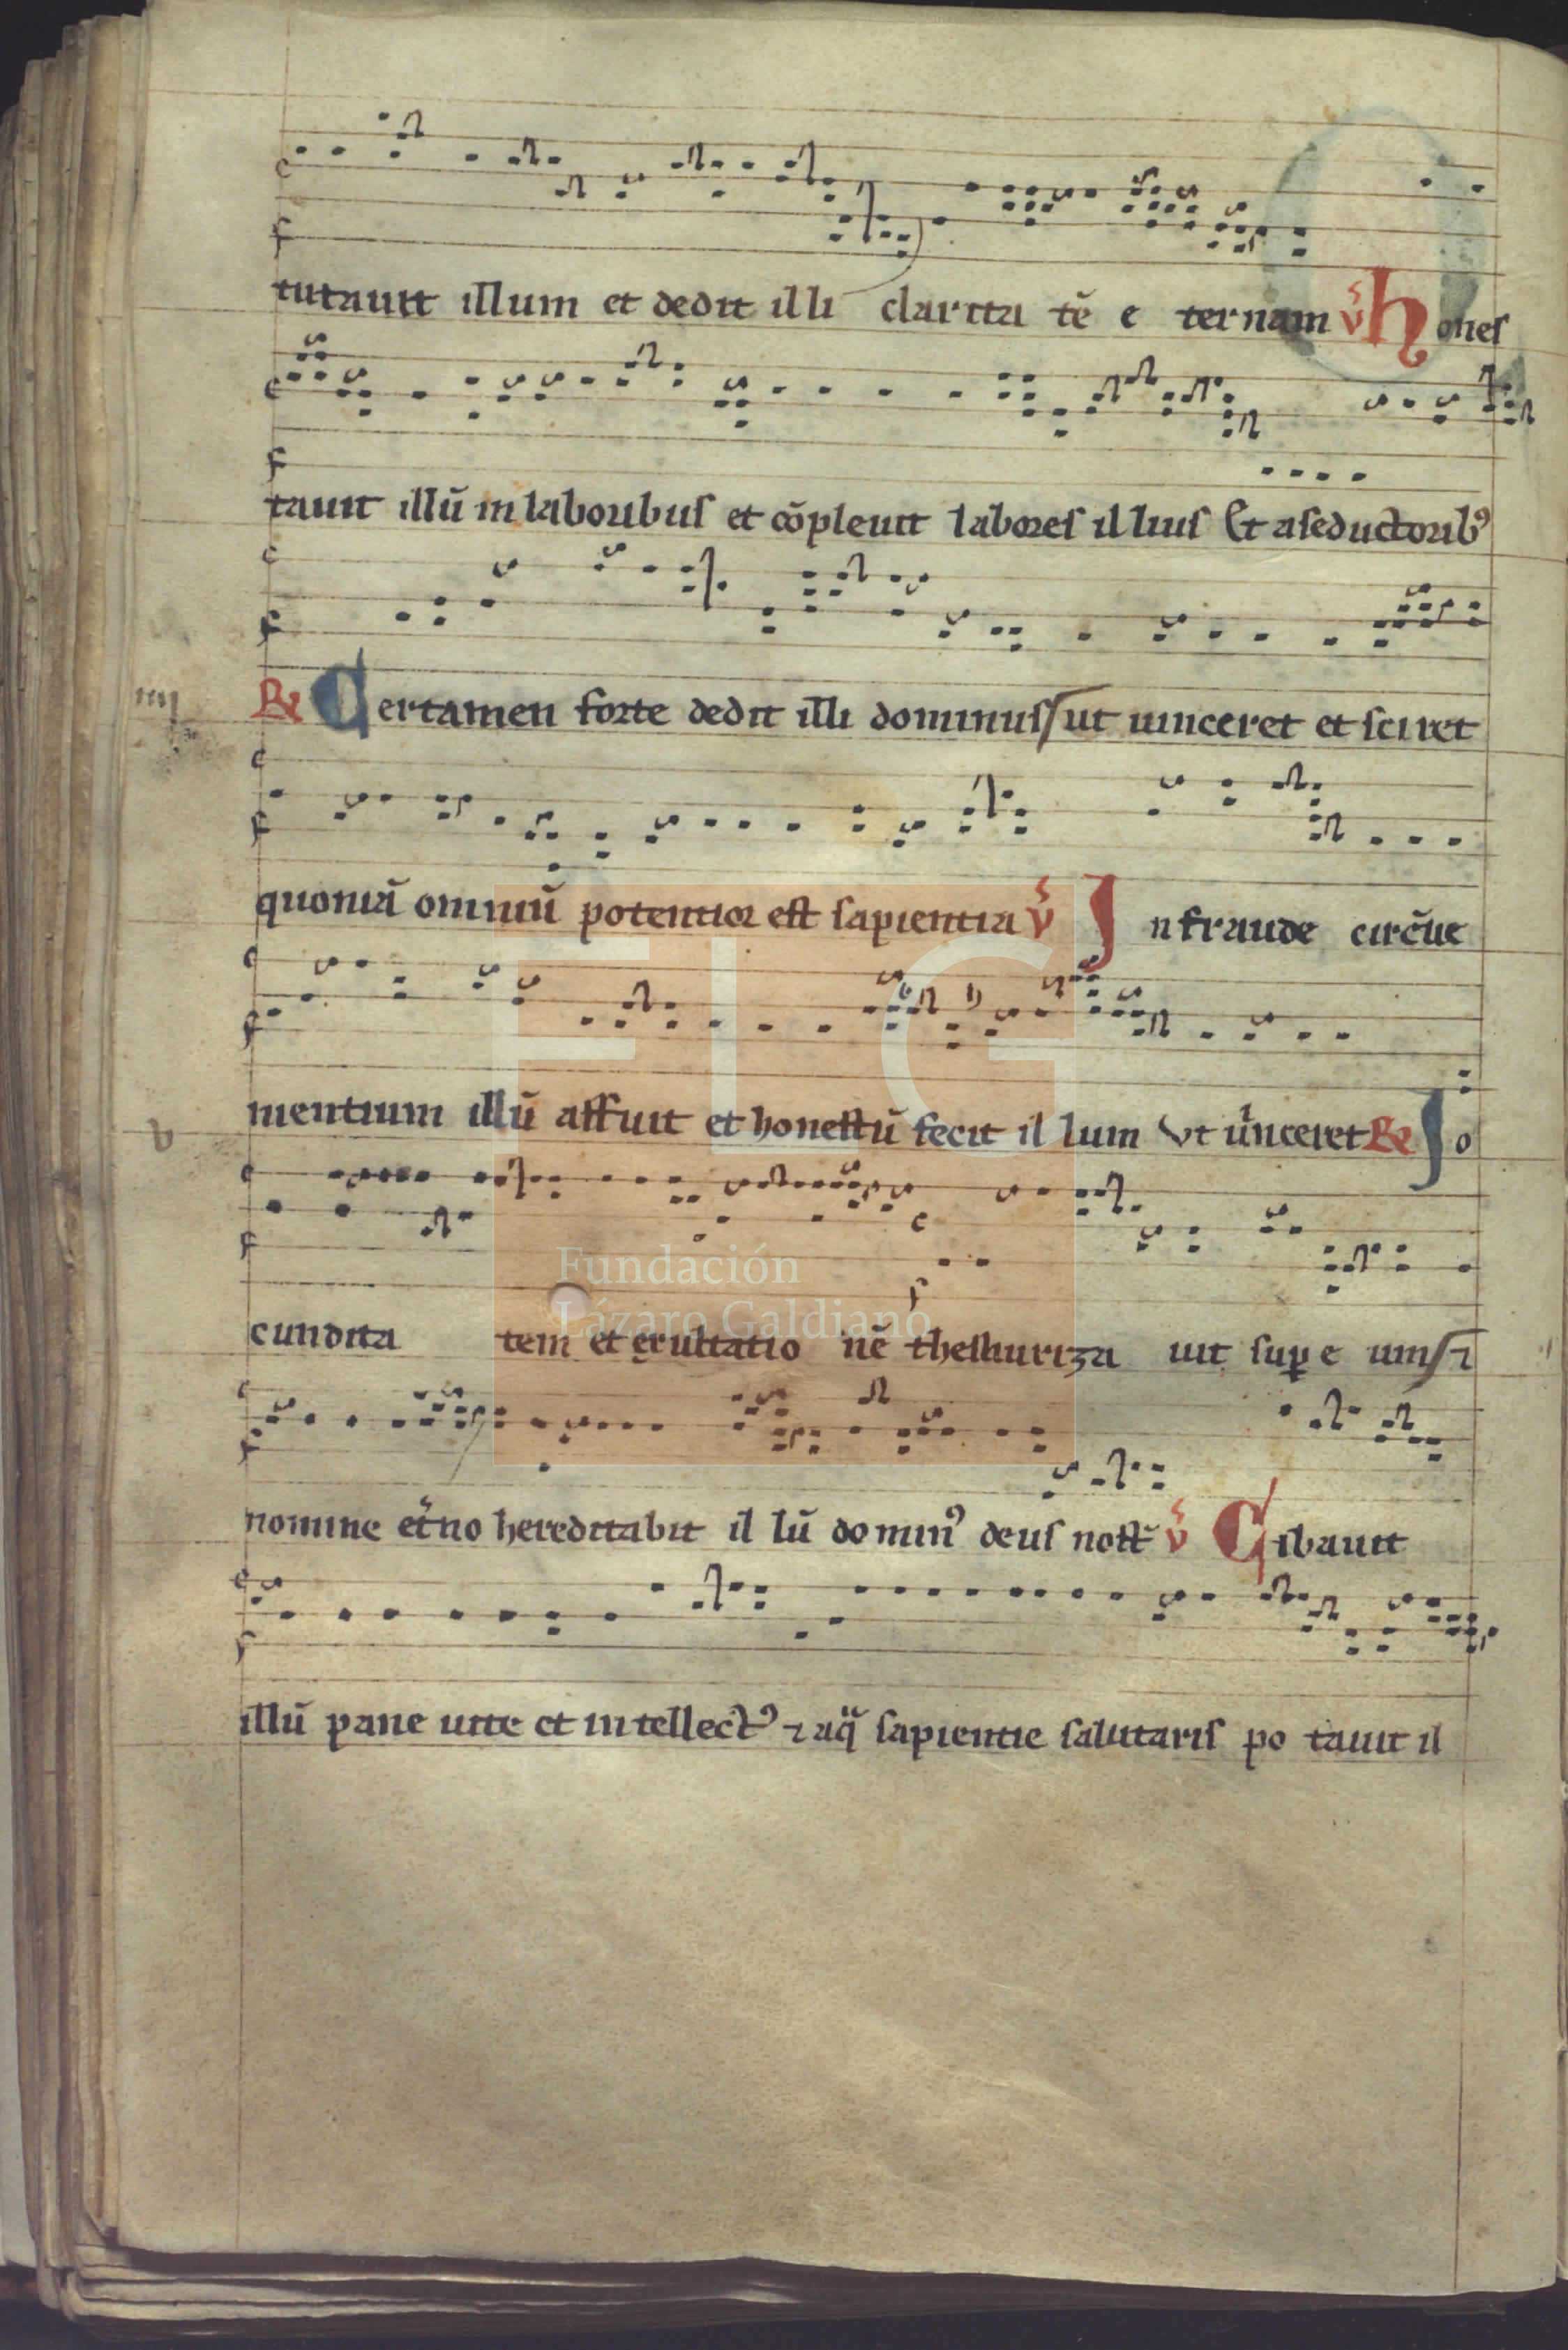 tutauit illum et dedit illi clarita tē e ternam v̄ hones
tauit illū in laboribus et cōpleuit labores il lius Et a seductoribꝰ
iiij ℞ Certamen forte dedit illi dominus ut uinceret et sciret
quoniā omniū potentior est sapientia v̄ In fraude circūue
mentium illū affuit et honestū fecit il lum Vt uinceret ℞ Jo
cundita tem et exultatio nē thesauriza uit sup e um ⁊
nomine etno hereditabit il lū dominꝰ deus nost̄ v̄ Cibauit
illū pane uite et intellectꝰ ⁊ aq̄ sapientie salutaris po tauit il
FLG
Fundación
Lázaro Galdiano